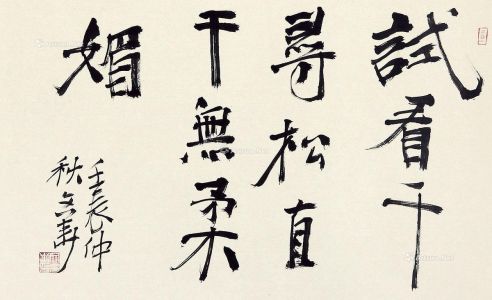 試看千
尋松直
干無柔
媚
壬辰仲
秋